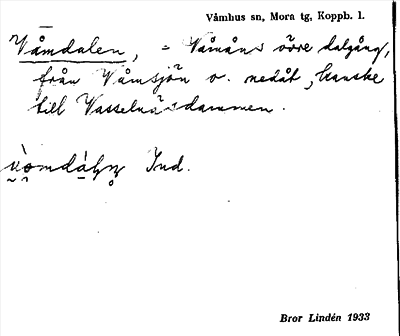 Våmhus sn, Mora tg, Koppb. l.
Våmdalen, = Våmåns övre dalgång,
från Våmsjön o. nedåt, kanske
till Vasselnäsdammen.
Ind.
Bror Lindén 1933